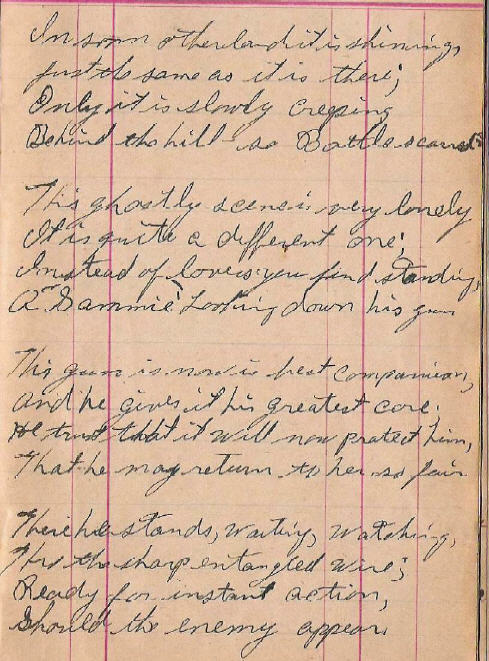 In som other land it is shining,
just the same as it is there;
Only it is slowly creeping
Behind the hill so Battle scarred

This ghostly scene is very lonely
It is quite a different one;
Instead of lovers you find standing,
A "Sammie" Looting down his gun

His gun is now is best companion,
And he gives it his greatest care.
He trust that it will now protect him,
That he may return to her so fair

There he stands, waiting, watching,
Thro the sharp entangled wire;
Ready for instant action,
Should the enemy appear.